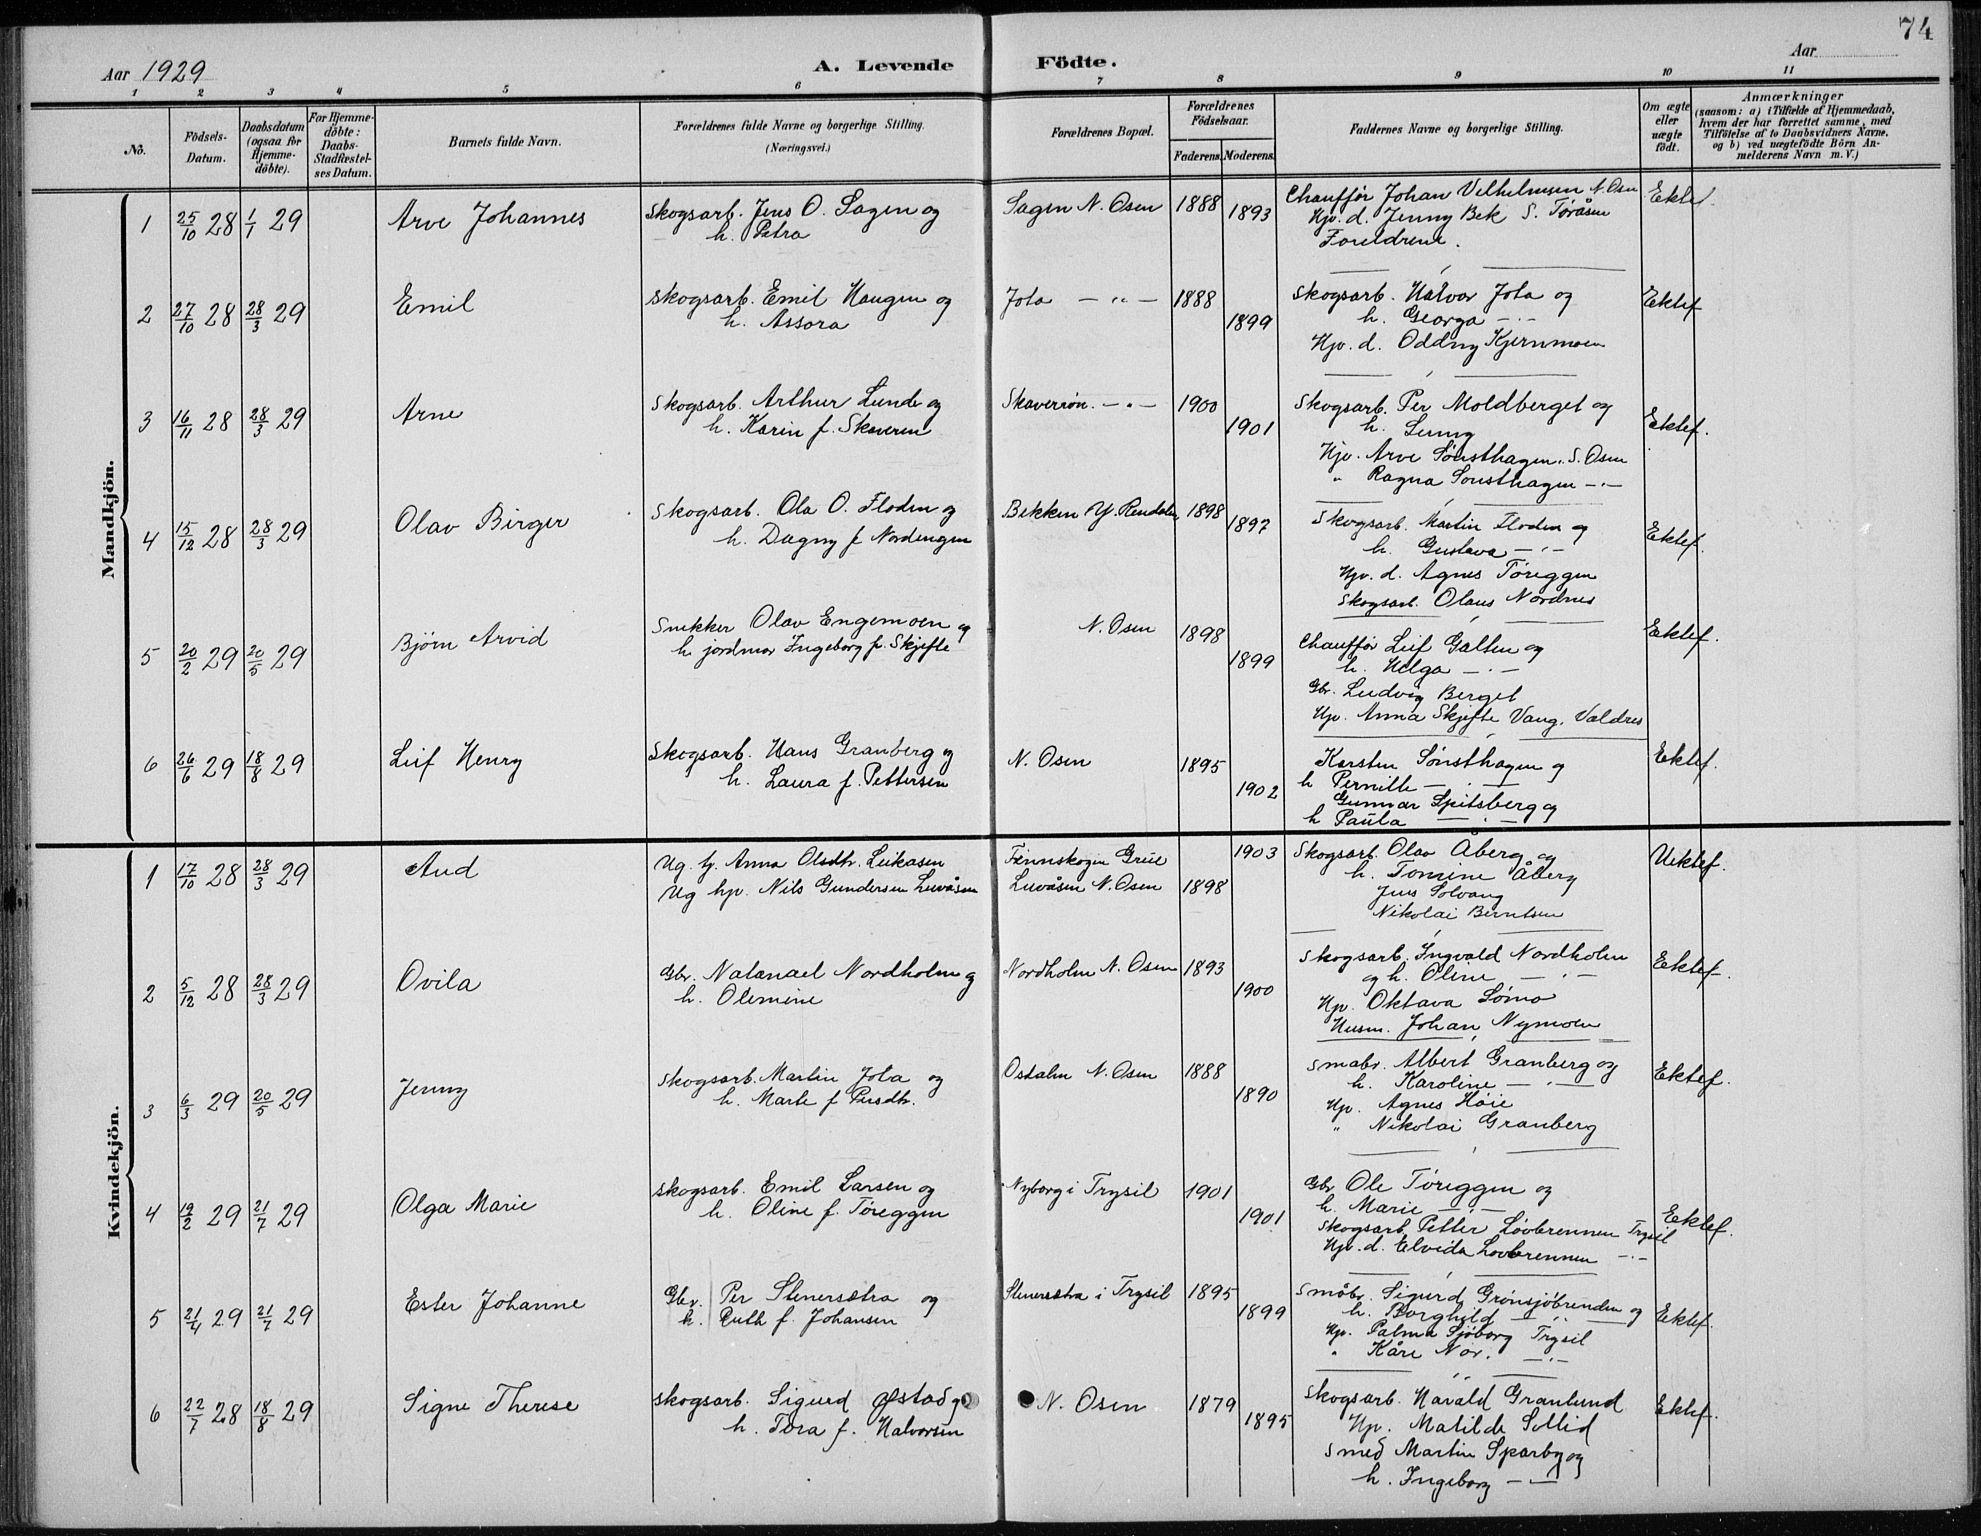 74
Aar 1929
A. Levende Födte.
Aar
1 2 3 4 5 6 7 8 9 10 11
No.
Födsels-Datum.
Daabsdatum (ogsaa for Hjemme-döbte).
For Hjemme-döbte: Daabs-Stadfæstel-ses Datum.
Barnets fulde Navn.
Forældrenes fulde Navne og borgerlige Stilling.
(Næringsvei.)
Forældrenes Bopæl.
Forældrenes Födselsaar.
Faderens. Moderens.
Faddernes Navne og borgerlige Stilling.
Om ægte eller uægte födt.
Anmærkninger
(saasom: a) i Tilfælde af Hjemmedaab, hvem der har forrettet samme, med Tilföielse af to Daabsvidners Navne, og b) ved uægtefödte Börn Anmelderens Navn m.V.)
Mandkjön.
1 25/10 28 1/1 29 Arve Johannes Skogsarb. Jens O. Sagen og Sagen N. Osen 1888 1893 Chauffør Johan Vilhelmsen N. Osen Ektef.
h. Petra Hjv. d. Jenny Bek S. Tøråsen
Foreldrene.
2 27/10 28 28/3 29 Emil Skogsarb. Emil Haugen og Jota — " — 1888 1899 Skogsarb. Halvor Jota og Ektef
h. Assora h. Georga — " —
Hjv. d. Oddny Kjernmoen
3 16/11 28 28/3 29 Arne Skogsarb. Arthur Lunde og Skaverrøn. — " — 1900 1901 Skogsarb. Per Moldberget og Ektef.
h. Karin f. Skaveren h. Lenny
Hjv. Arve Sønsthagen. S. Osen
" Ragna Sønsthagen — " —
4 15/12 28 28/3 29 Olav Birger Skogsarb. Ola O. Floden og Bekken Y. Rendalen 1898 1897 Skogsarb. Martin Floden og Ektef.
h. Dagny f Nordengen h. Gustava — " —
Hjv. d. Agnes Tøreggen
Skogsarb. Olaus Nordnes
5 20/2 29 20/5 29 Bjørn Arvid Snekker Olav Engemoen og N. Osen 1898 1899 Chauffør Leif Galten og Ektef.
h jordmor Ingeborg f. Skjefte h. Helga — " —
Gbr. Ludvig Berget
Hjv. Anna Skjefte Vang. Valdres
6 26/6 29 18/8 29 Leif Henry Skogsarb. Hans Granberg og N. Osen 1895 1902 Karsten Sønsthagen og Ektef.
h. Laura f. Pettersen h Pernille — " —
Gunnar Spitsberg og
h Paula — " —
Kvindekjön.
1 17/10 28 28/3 29 Aud Ug. tj. Anna Olsdtr. Leikasen Finnskogen Grue 1903 Skogsarb. Olav Åberg og Uektef.
Ug hjv. Nils Gundersen Luvåsen Luvåsen N. Osen 1898 h. Tomine Åberg
Jens Solvang
Nikolai Berntsen
2 5/12 28 28/3 29 Ovila Gbr. Natanael Nordholm og Nordholm N. Osen 1893 1900 Skogsarb. Ingvald Nordholm Ektef.
h. Olemine og h. Oline — " —
Hjv. Oktava Sømo
Husm. Johan Nymoen
3 6/3 29 20/5 29 Jenny Skogsarb. Martin Jota og Ostalen N. Osen 1888 1890 Småbr. Albert Granberg og Ektef.
h. Marte f Persdtr. h. Karoline — " —
Hjv. Agnes Høie
" Nikolai Granberg
4 19/2 29 21/7 29 Olga Marie Skogsarb. Emil Larsen og Nyborg i Trysil 1901 1901 Gbr Ole Tøreggen og Ektef.
h. Oline f. Tøreggen h. Marie — " —
Skogsarb. Petter Løvbrennen Trysil
Hjv. d. Elvida Løvbrennen — " —
5 21/4 29 21/7 29 Ester Johanne Gbr. Per Stenersætra og Stenersætra i Trysil 1895 1899 Småbr. Sigurd Grønsjöbrenden og Ektef.
h. Ruth f. Johansen h. Borghild — " —
Hjv. Palma Sjöborg Trysil
" Kåre Nor. — " —
6 22/7 28 18/8 29 Signe Therese Skogsarb. Sigurd Østad og N. Osen 1879 1895 Skogsarb. Harald Granlund Ektef.
h. Tora f. Halvorsen Hjv. Matilde Sollid
Smed Martin Sparby og
h. Ingeborg — " —